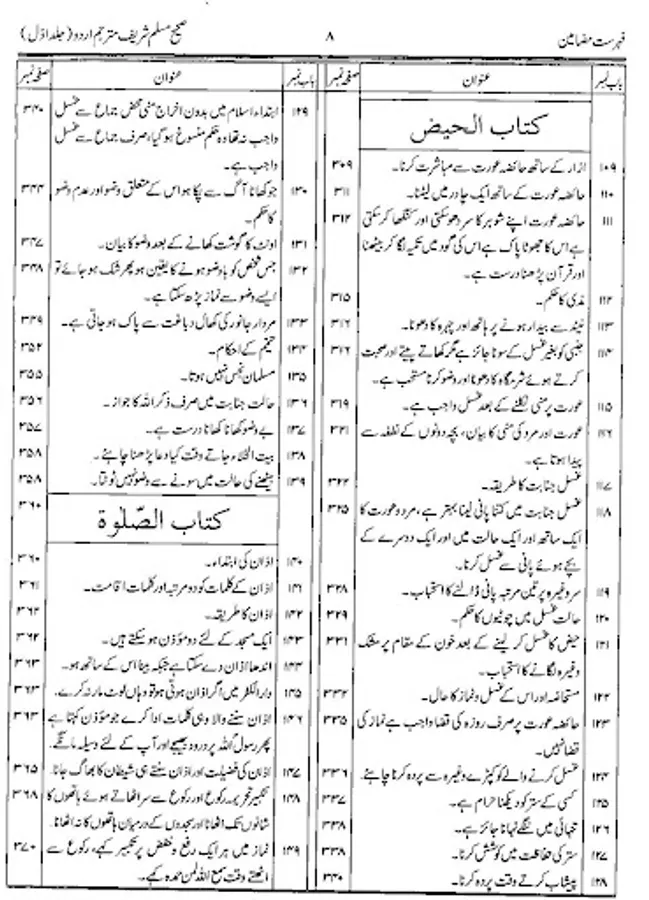 فہرست مضامین ۸ صحیح مسلم شریف مترجم اردو (جلد اوّل)
باب نمبر عنوان صفحہ نمبر
کتاب الحیض
۱۰۹ ازار کے ساتھ حائضہ عورت سے مباشرت کرنا۔ ۳۰۹
۱۱۰ حائضہ عورت کے ساتھ ایک چادر میں لیٹنا۔ ۳۱۱
۱۱۱ حائضہ عورت اپنے شوہر کا سر دھو سکتی اور کنگھا کر سکتی ۳۱۲
ہے اس کا جھوٹا پاک ہے اس کی گود میں تکیہ لگا کر بیٹھنا
اور قرآن پڑھنا درست ہے۔
۱۱۲ مذی کا حکم۔ ۳۱۵
۱۱۳ نیند سے بیدار ہونے پر ہاتھ اور چہرہ کا دھونا۔ ۳۱۶
۱۱۴ جنبی کو بغیر غسل کے سونا جائز ہے مگر کھاتے پیتے اور صحبت ۳۱۶
کرتے ہوئے شرمگاہ کا دھونا اور وضو کرنا مستحب ہے۔
۱۱۵ عورت پر منی نکلنے کے بعد غسل واجب ہے۔ ۳۱۹
۱۱۶ عورت اور مرد کی منی کا بیان، بچہ دونوں کے نطفہ سے ۳۲۱
پیدا ہوتا ہے۔
۱۱۷ غسل جنابت کا طریقہ۔ ۳۲۲
۱۱۸ غسل جنابت میں کتنا پانی لینا بہتر ہے، مرد و عورت کا ۳۲۵
ایک ساتھ اور ایک حالت میں اور ایک دوسرے کے
بچے ہوئے پانی سے غسل کرنا۔
۱۱۹ سر وغیرہ پر تین مرتبہ پانی ڈالنے کا استحباب۔ ۳۲۸
۱۲۰ حالت غسل میں چوٹیوں کا حکم۔ ۳۲۹
۱۲۱ حیض کا غسل کر لینے کے بعد خون کے مقام پر مشک ۳۳۱
وغیرہ لگانے کا استحباب۔
۱۲۲ مستحاضہ اور اس کے غسل و نماز کا حال۔ ۳۳۲
۱۲۳ حائضہ عورت پر صرف روزہ کی قضا واجب ہے نماز کی ۳۳۵
قضا نہیں۔
۱۲۴ غسل کرنے والے کو کپڑے وغیرہ سے پردہ کرنا چاہئے۔ ۳۳۶
۱۲۵ کسی کے ستر کو دیکھنا حرام ہے۔ ۳۳۷
۱۲۶ تنہائی میں ننگے نہانا جائز ہے۔ ۳۳۸
۱۲۷ ستر کی حفاظت میں کوشش کرنا۔ ۳۳۸
۱۲۸ پیشاب کرتے وقت پردہ کرنا۔ ۳۴۰
باب نمبر عنوان صفحہ نمبر
۱۲۹ ابتداء اسلام میں بدون اخراج منی محض جماع سے غسل ۳۴۰
واجب نہ تھا وہ حکم منسوخ ہو گیا، صرف جماع سے غسل
واجب ہے۔
۱۳۰ جو کھانا آگ سے پکا ہو اس کے متعلق وضو اور عدم وضو ۳۴۴
کا حکم۔
۱۳۱ اونٹ کا گوشت کھانے کے بعد وضو کا بیان۔ ۳۴۷
۱۳۲ جس شخص کو باوضو ہونے کا یقین ہو پھر شک ہو جائے تو ۳۴۸
ایسے وضو سے نماز پڑھ سکتا ہے۔
۱۳۳ مردار جانور کی کھال دباغت سے پاک ہو جاتی ہے۔ ۳۴۹
۱۳۴ تیمم کے احکام۔ ۳۵۲
۱۳۵ مسلمان نجس نہیں ہوتا۔ ۳۵۵
۱۳۶ حالت جنابت میں صرف ذکر اللہ کا جواز۔ ۳۵۶
۱۳۷ بے وضو کھانا کھانا درست ہے۔ ۳۵۷
۱۳۸ بیت الخلاء جاتے وقت کیا دعا پڑھنا چاہئے۔ ۳۵۸
۱۳۹ بیٹھنے کی حالت میں سونے سے وضو نہیں ٹوٹتا۔ ۳۵۸
کتاب الصّلٰوۃ ۳۶۰
۱۴۰ اذان کی ابتداء۔ ۳۶۰
۱۴۱ اذان کے کلمات کو دو مرتبہ اور کلمات اقامت۔ ۳۶۱
۱۴۲ اذان کا طریقہ۔ ۳۶۲
۱۴۳ ایک مسجد کے لئے دو مؤذن ہو سکتے ہیں۔ ۳۶۲
۱۴۴ اندھا اذان دے سکتا ہے جبکہ بینا اس کے ساتھ ہو۔ ۳۶۳
۱۴۵ دارالکفر میں اگر اذان ہوتی ہو تو وہاں لوٹ مار نہ کرے۔ ۳۶۳
۱۴۶ اذان سننے والا وہی کلمات ادا کرے جو مؤذن کہتا ہے ۳۶۳
پھر رسول اللہ پر درود بھیجے اور آپ کے لئے وسیلہ مانگے۔
۱۴۷ اذان کی فضیلت اور اذان سنتے ہی شیطان کا بھاگ جانا۔ ۳۶۵
۱۴۸ تکبیر تحریمہ رکوع اور رکوع سے سر اٹھاتے ہوئے ہاتھوں کا ۳۶۸
شانوں تک اٹھانا اور سجدوں کے درمیان ہاتھوں کا نہ اٹھانا۔
۱۴۹ نماز میں ہر ایک رفع و خفض پر تکبیر کہے، رکوع سے ۳۷۰
اٹھتے وقت سمع اللہ لمن حمدہ کہے۔